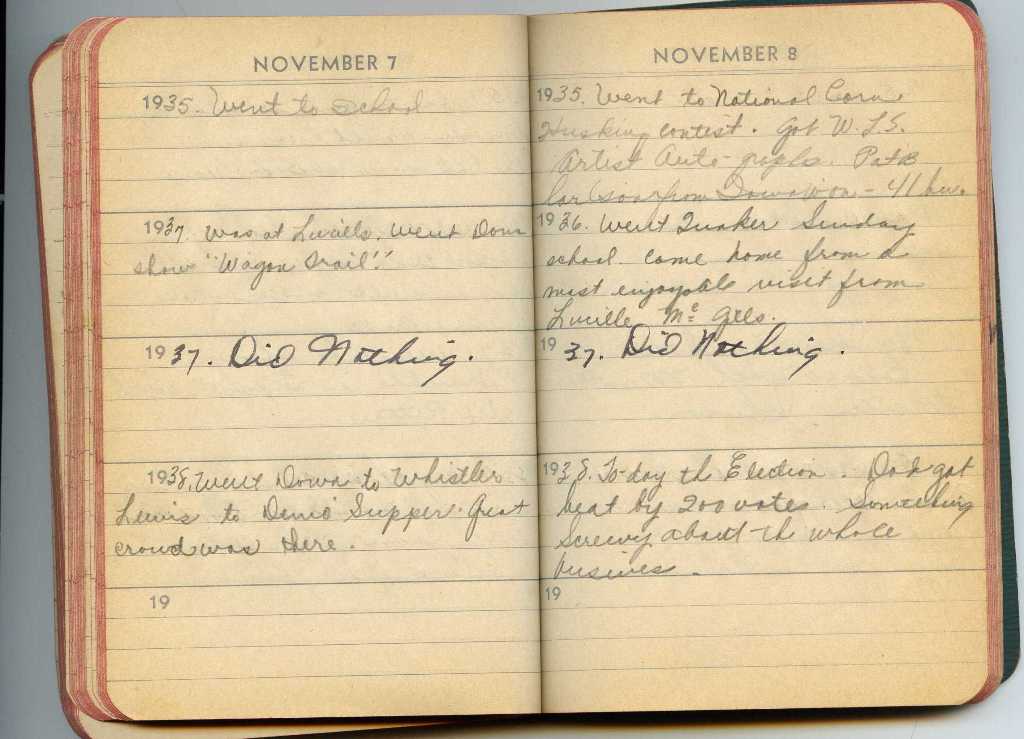 NOVEMBER 7
1935. Went to School
1937. Was at Lucille. Went Down
show "Wagon Trail".
1937. Did Nothing.
1938. Went Down to Whistler
Lewis to Demo Supper. Great
crowd was there.
19
NOVEMBER 8
1935. Went to National Corn
Husking contest. Got W.L.S.
Artist Auto-graphs.
from Iowa won - 41 bu.
1936. Went Quaker Sunday
school. Came home from a
most enjoyable visit from
Lucille Mc
1937. Did Nothing.
1938. To-day the Election. Dad got
beat by 200 votes. Something
Screwy about the whole
busines.
19